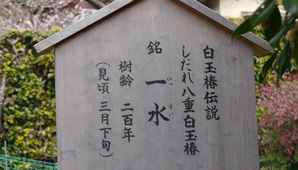 白玉椿伝説
しだれ八重白玉椿
銘 一水
いっすい
樹齢 二百年
（見頃 三月下旬）